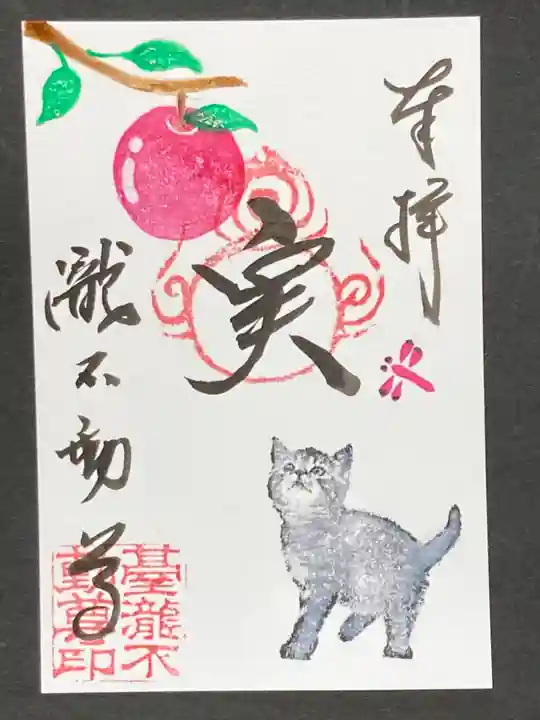 奉拝
実
瀧不動尊
臺瀧不
動尊印